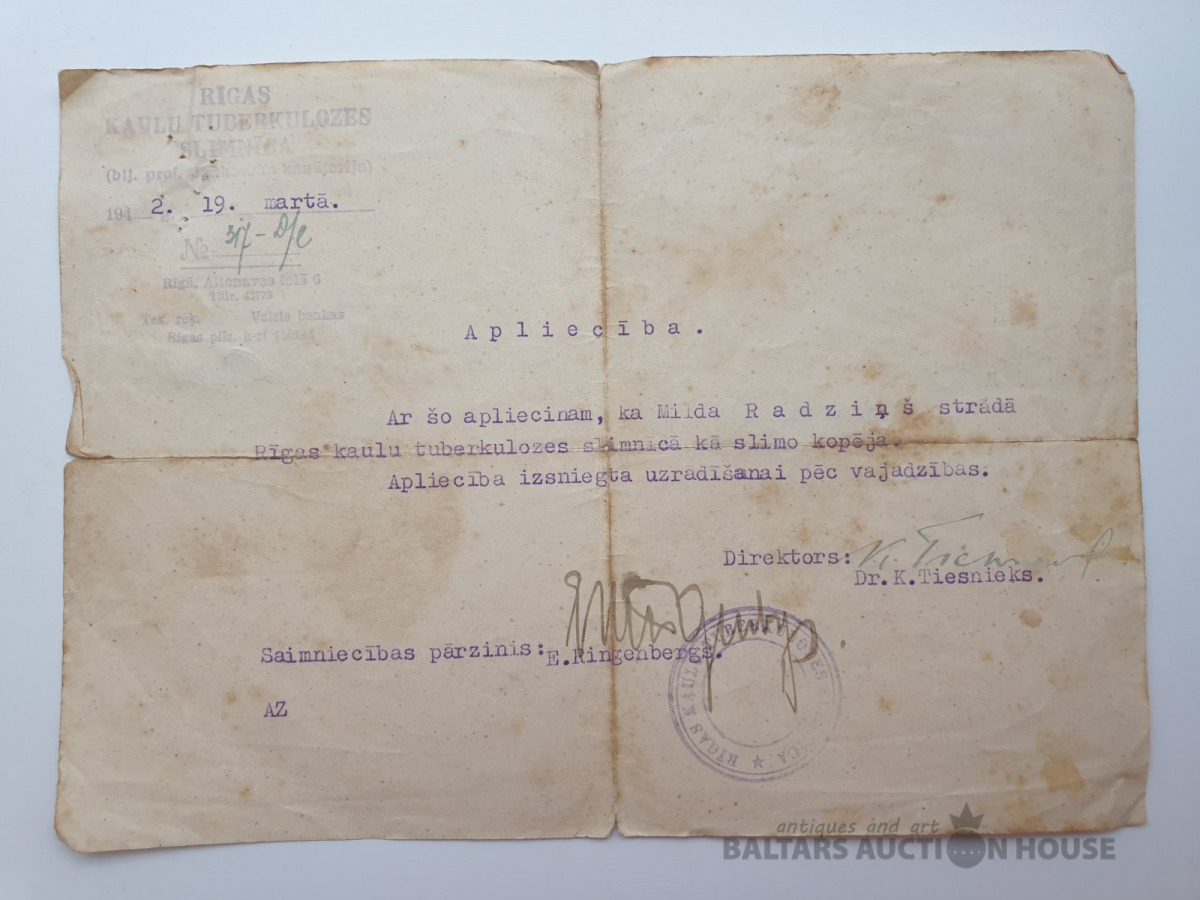 RIGAS
KAULU TUBERKULOZES
SLIMNICA
(bij. prof.
194 2. 19. martā.
№ 317 -
Rīgā, Altonavas ielā 6
Tālr. 43775
Tek. rēķ. Valsts bankas
Rīgas pils.
Apliecība.
Ar šo apliecinam, ka Milda Radziņš strādā
Rīgas kaulu tuberkulozes slimnīcā kā slimo kopēja.
Apliecība izsniegta uzrādīšanai pēc vajadzības.
Direktors:
Dr.K.Tiesnieks.
Saimniecības pārzinis: E.Ringenbergs.
AZ
RĪGAS KAULU TUBERKULOZES
antiques and art
BALTARS AUCTION HOUSE